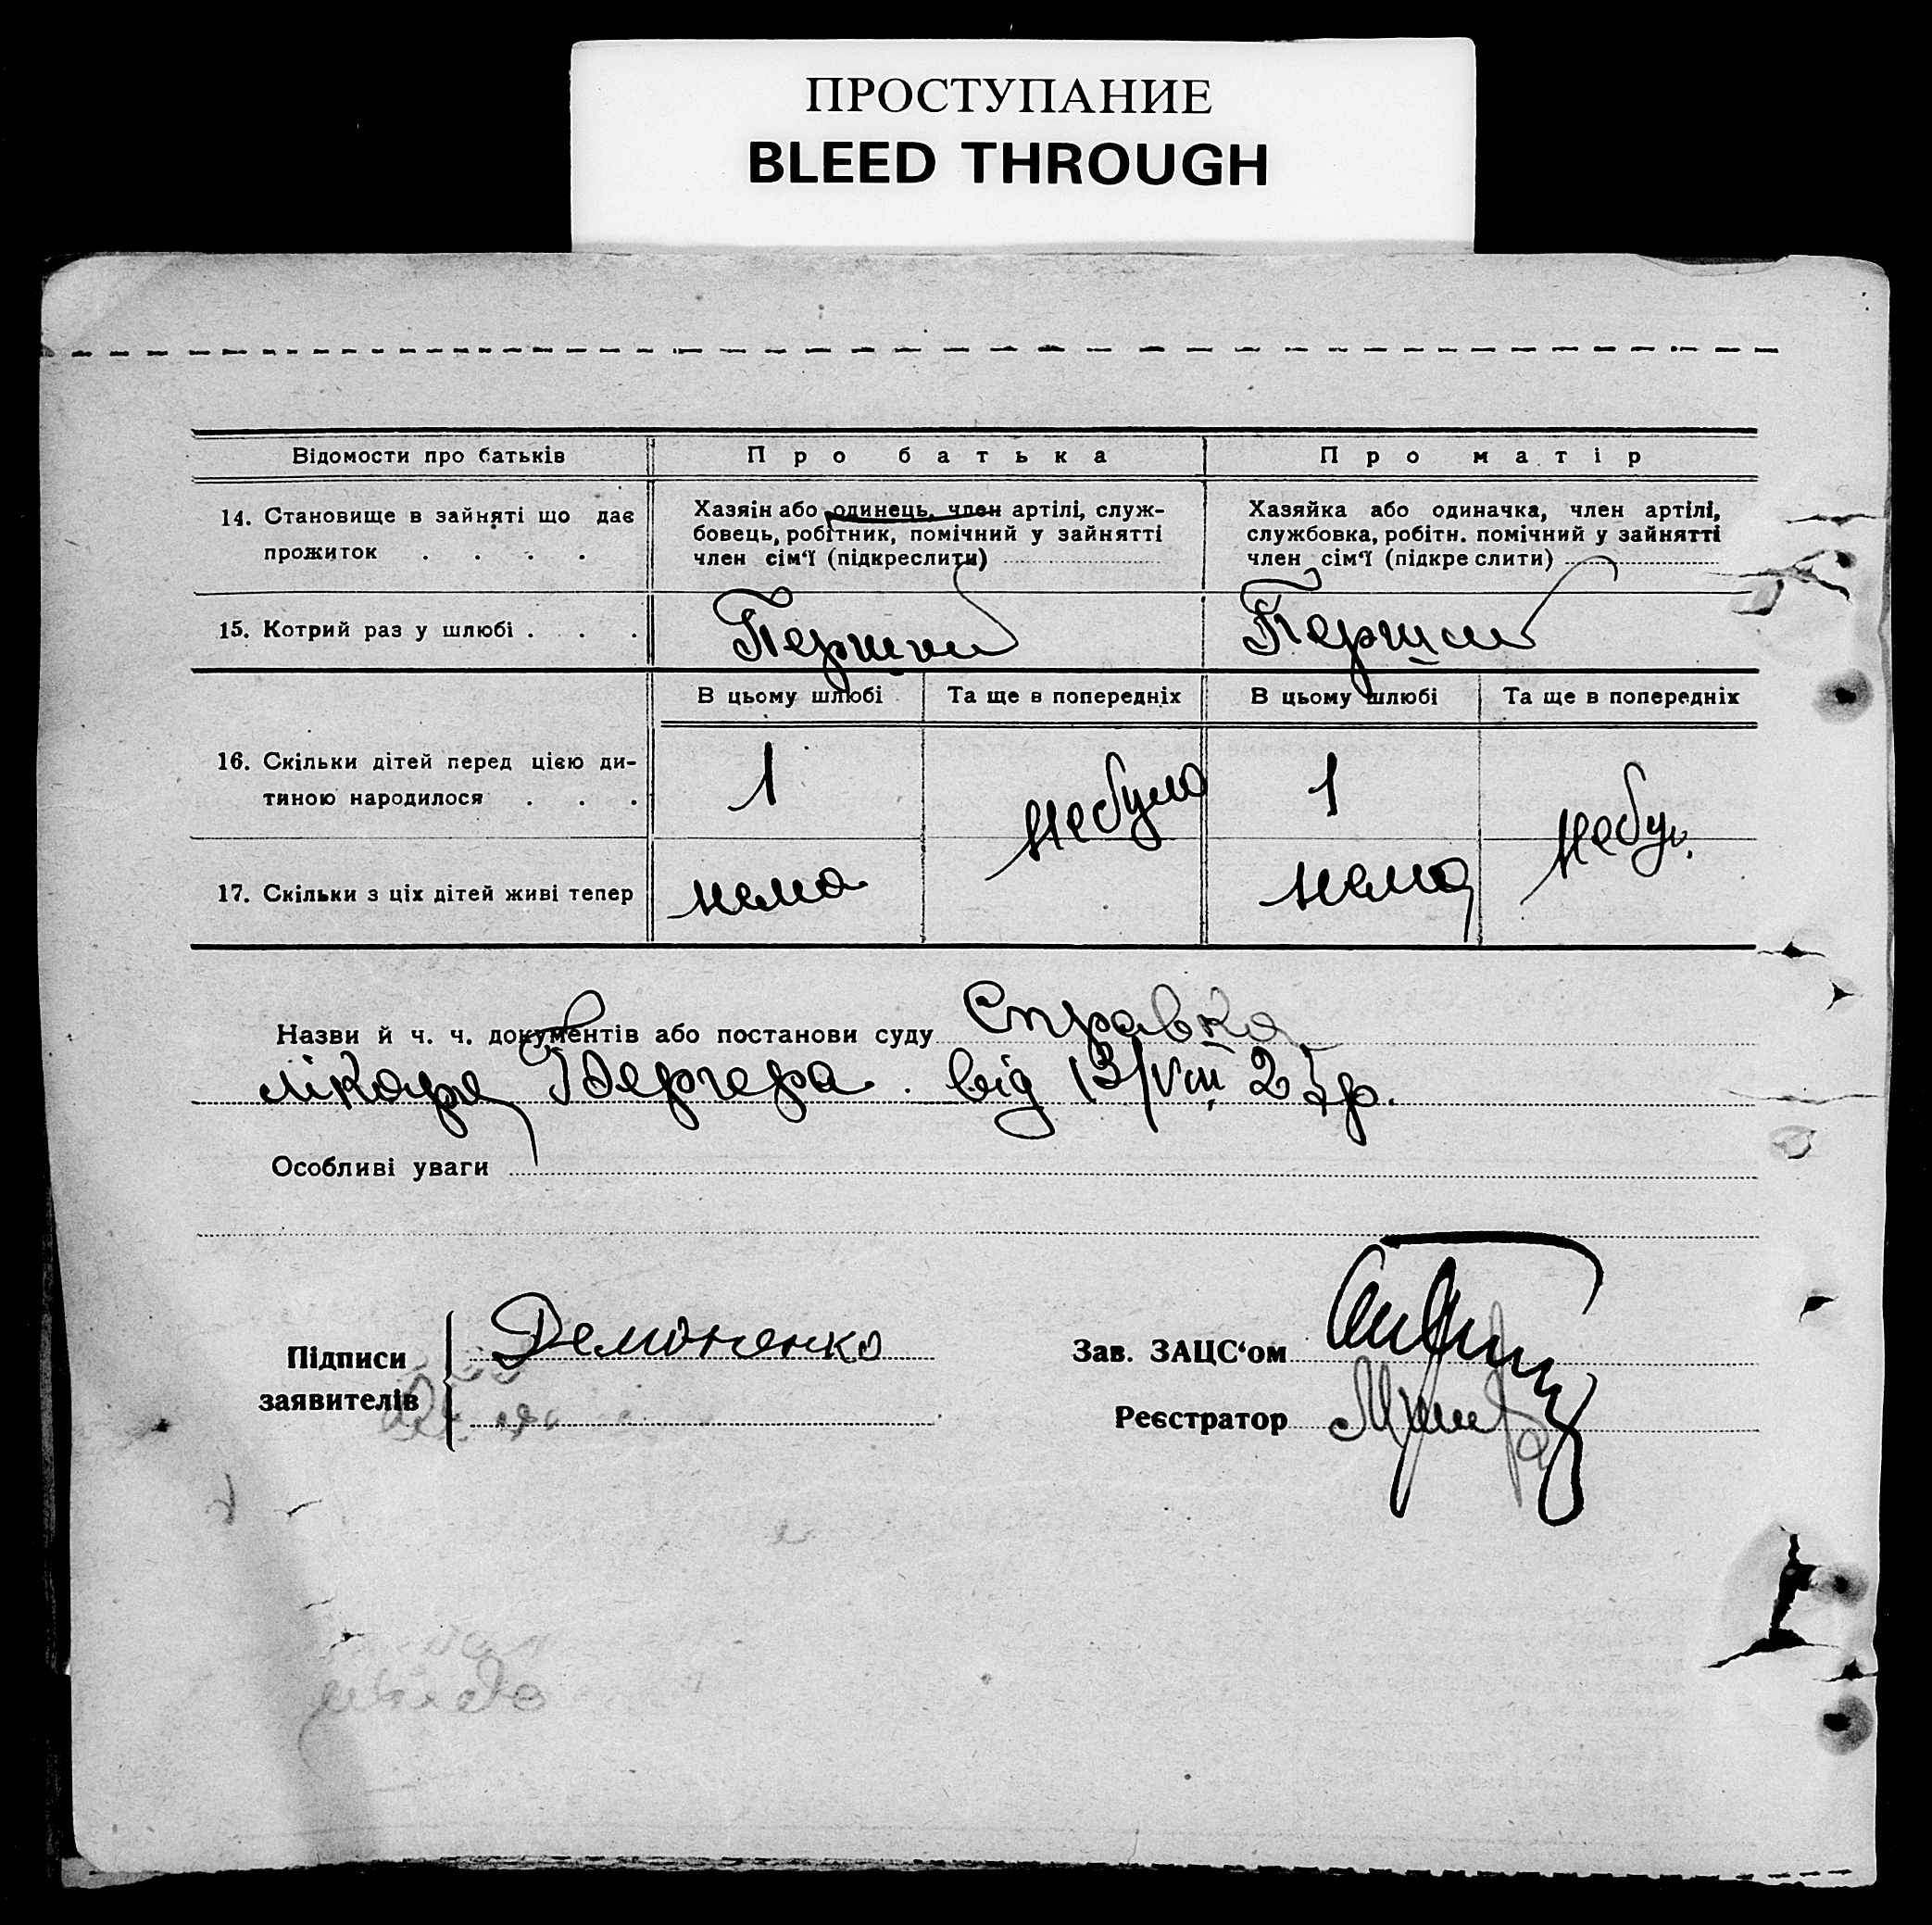 ПРОСТУПАНИЕ
BLEED THROUGH
Відомости про батьків
Про батька
Про матір
14. Становище в зайняті що дає
прожиток . . . .
Хазяін або одинець, член артілі, служ-
бовець, робітник, помічний у зайнятті
член сім‘ї (підкреслити)
Хазяйка або одиначка, член артілі,
службовка, робітн. помічний у зайнятті
член сім‘ї (підкре слити)
15. Котрий раз у шлюбі . . .
Перший
Перший
В цьому шлюбі
Та ще в попередніх
В цьому шлюбі
Та ще в попередніх
16. Скільки дітей перед цією ди-
тиною народилося . . .
1
не було
1
не бул.
17. Скільки з ціх дітей живі тепер
нема
нема
Назви й ч. ч. документів або постанови суду Справка
лікаря Вергера. від 13/VIII 25р.
Особливі уваги
Підписи
заявителів
Демоненко
Зав. ЗАЦС‘ом
Реєстратор